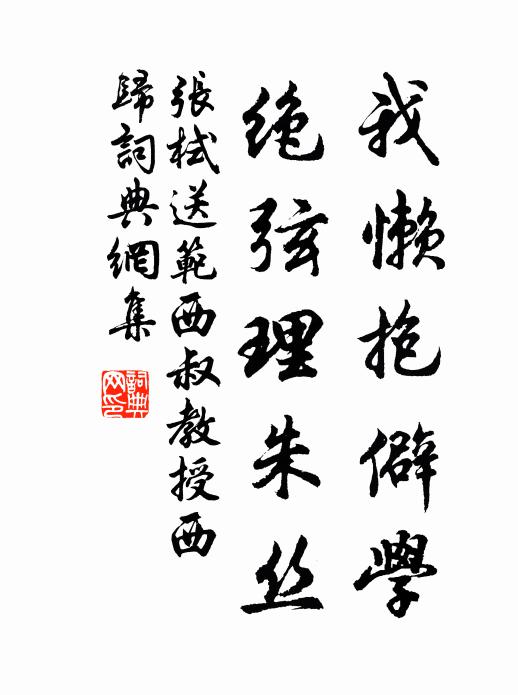 我懒抱僻學
绝弦理朱丝
張栻送範西叔教授西
歸詞典網集
詞典网印